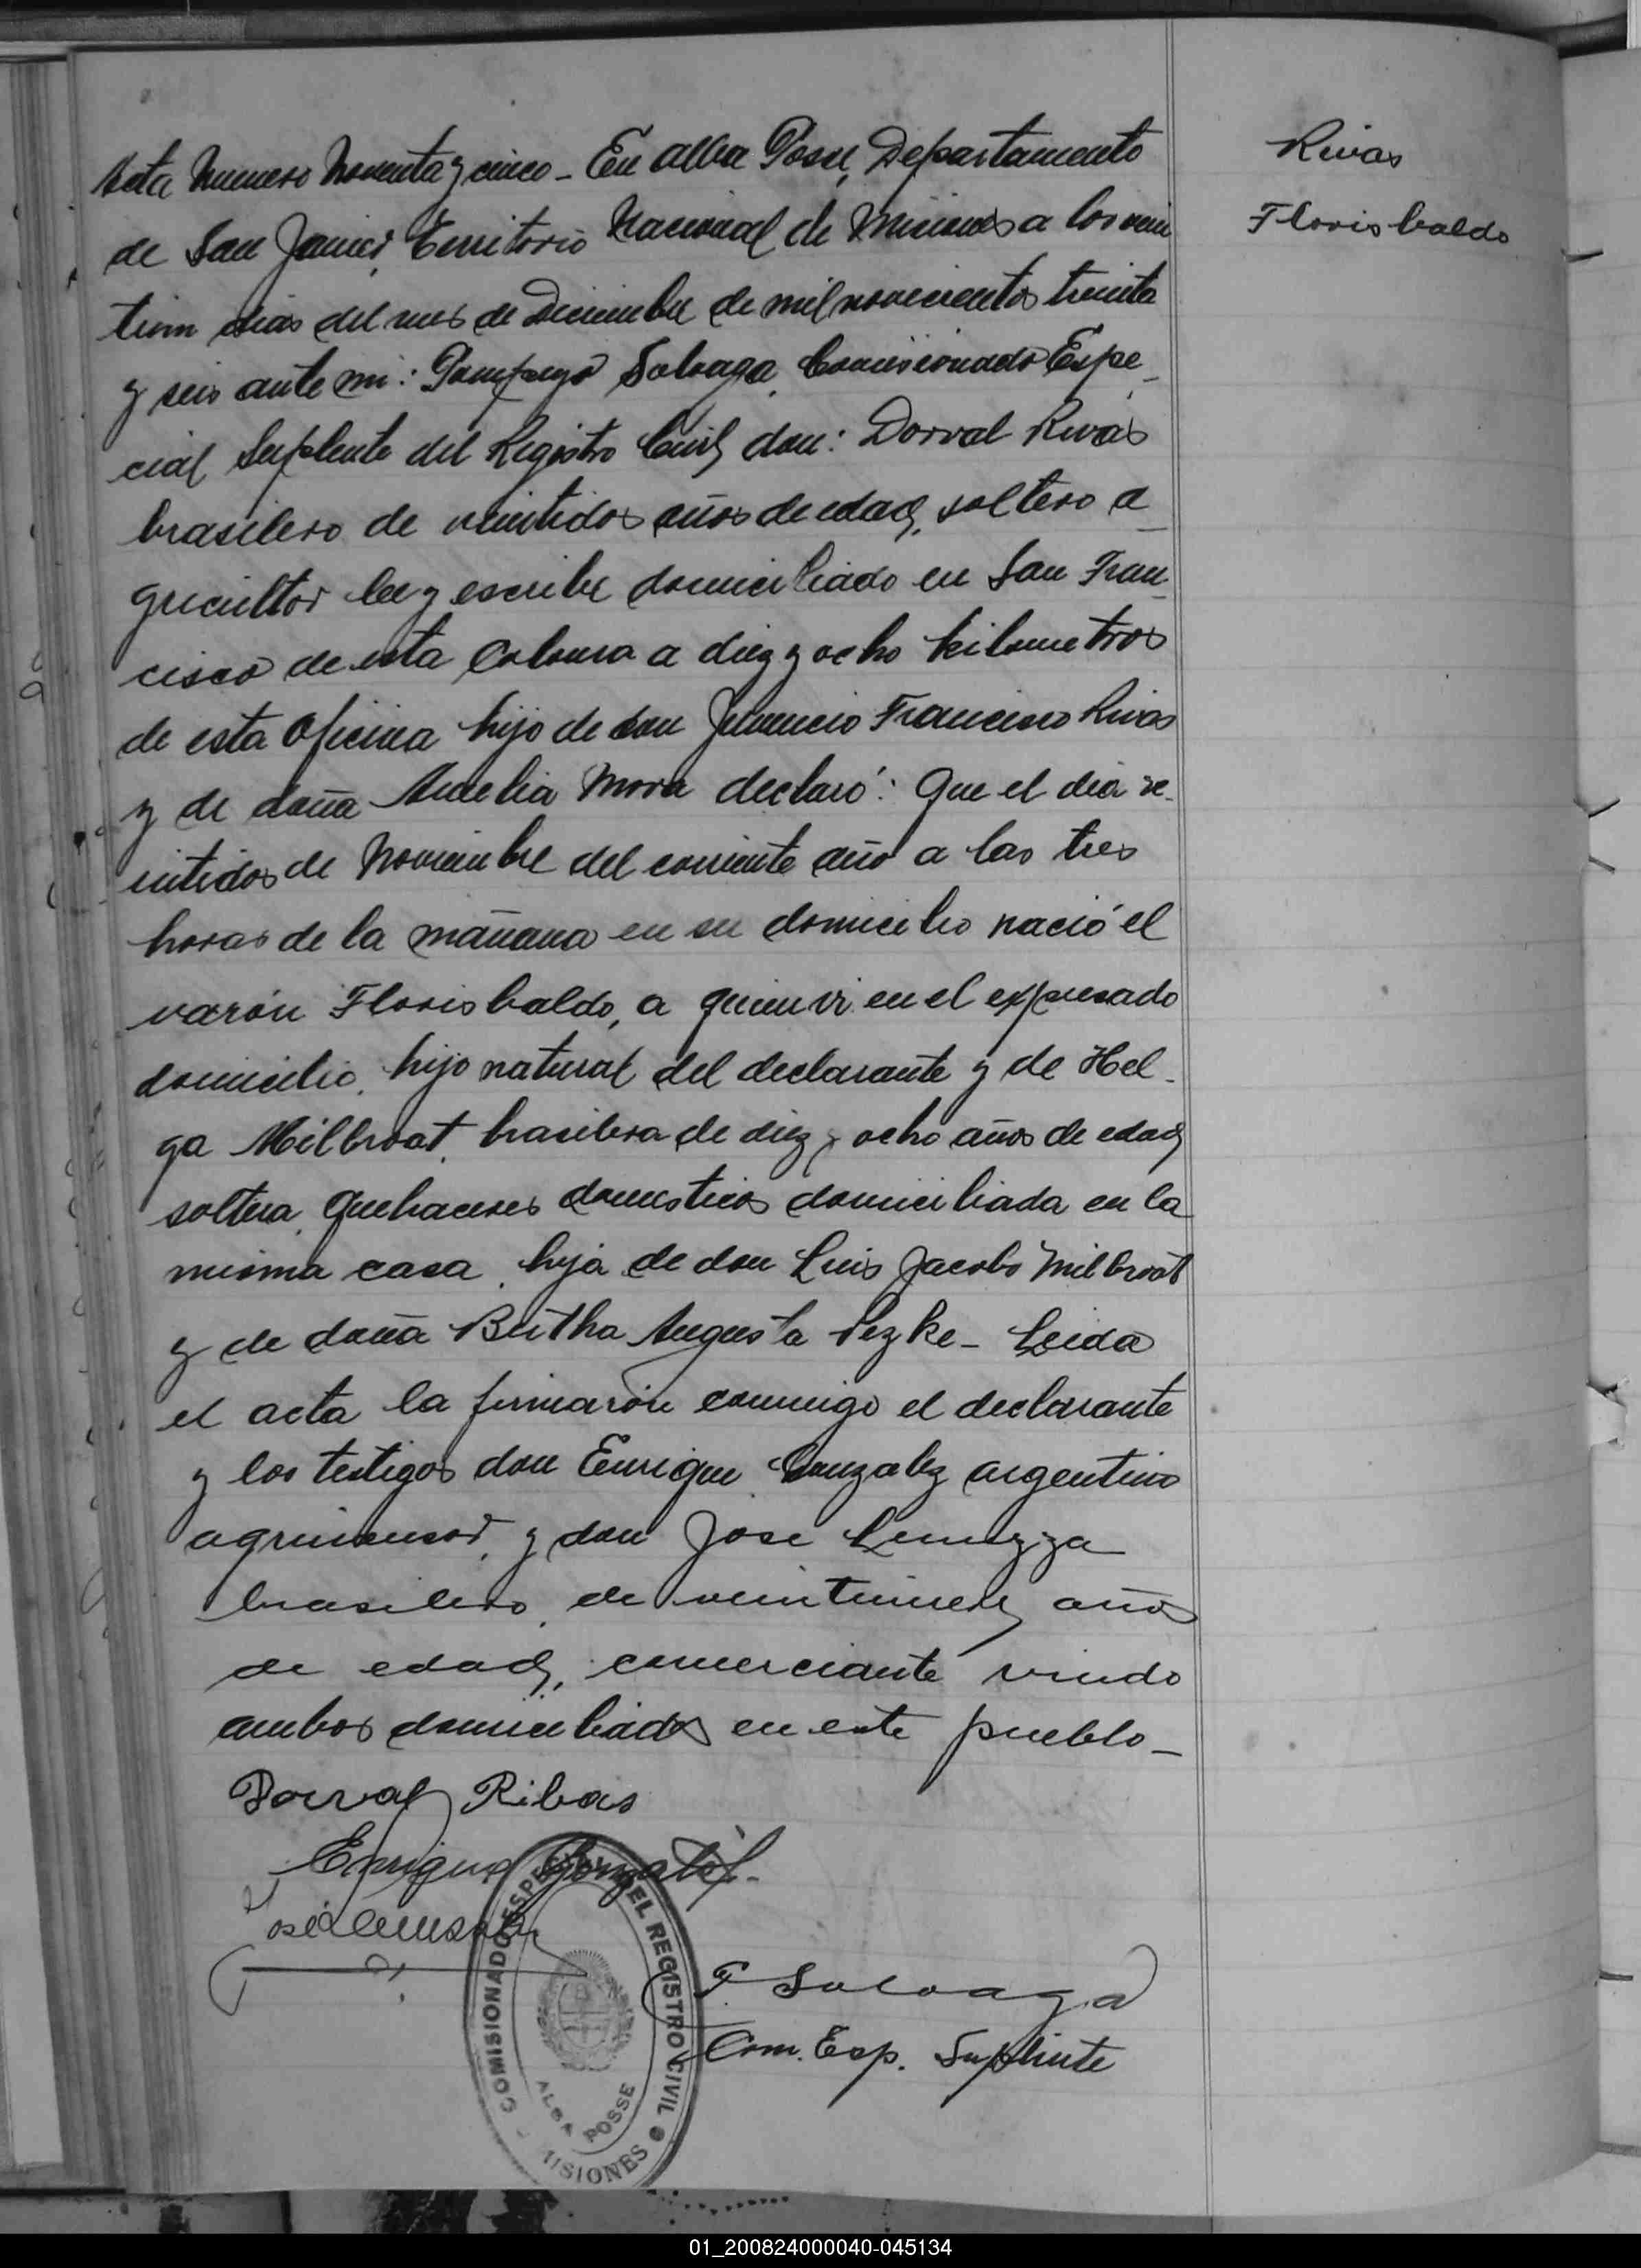 Acta Numero Noventa y cinco - En Alba Posse, Departamento
de San Javier, Territorio Nacional de Misiones a los vein
tiun dias del mes de Diciembre de mil novecientos treinta
y seis ante mi: Pompeyo Soloaga, Comisionado Espe-
cial Suplente del Registro Civil, don: Dorval Rivas
brasilero de veintidos años de edad, soltero a-
gricultor lee y escribe domiciliado en San Fran-
cisco de esta Colonia a diez y ocho kilometros
de esta Oficina hijo de don Juvencio Francisco Rivas
y de doña Amelia Mora declaró: Que el dia ve-
intidos de Noviembre del corriente año a las tres
horas de la mañana en su domicilio nació el
varón Florisbaldo, a quien vi en el expresado
domicilio, hijo natural del declarante y de Hel-
ga Milbroat, brasilera de diez y ocho años de edad,
soltera, quehaceres domesticos domiciliada en la
misma casa, hija de don Luis Jacobo Milbroat
y de doña Bertha Augusta - Leida
el acta la firmarón conmigo el declarante
y los testigos don Enrique Gonzalez argentino
agrimensor, y don Jose
brasilero, de años
de edad, comerciante viudo
ambos domiciliados en este pueblo -
Dorval Ribas
Enrique Gonzalez
José
P. Soloaga
Com. Esp. Suplente
COMISIONADO ESPECIAL DEL REGISTRO CIVIL
ALBA POSSE
MISIONES
Rivas
Florisbaldo
01_200824000040-045134